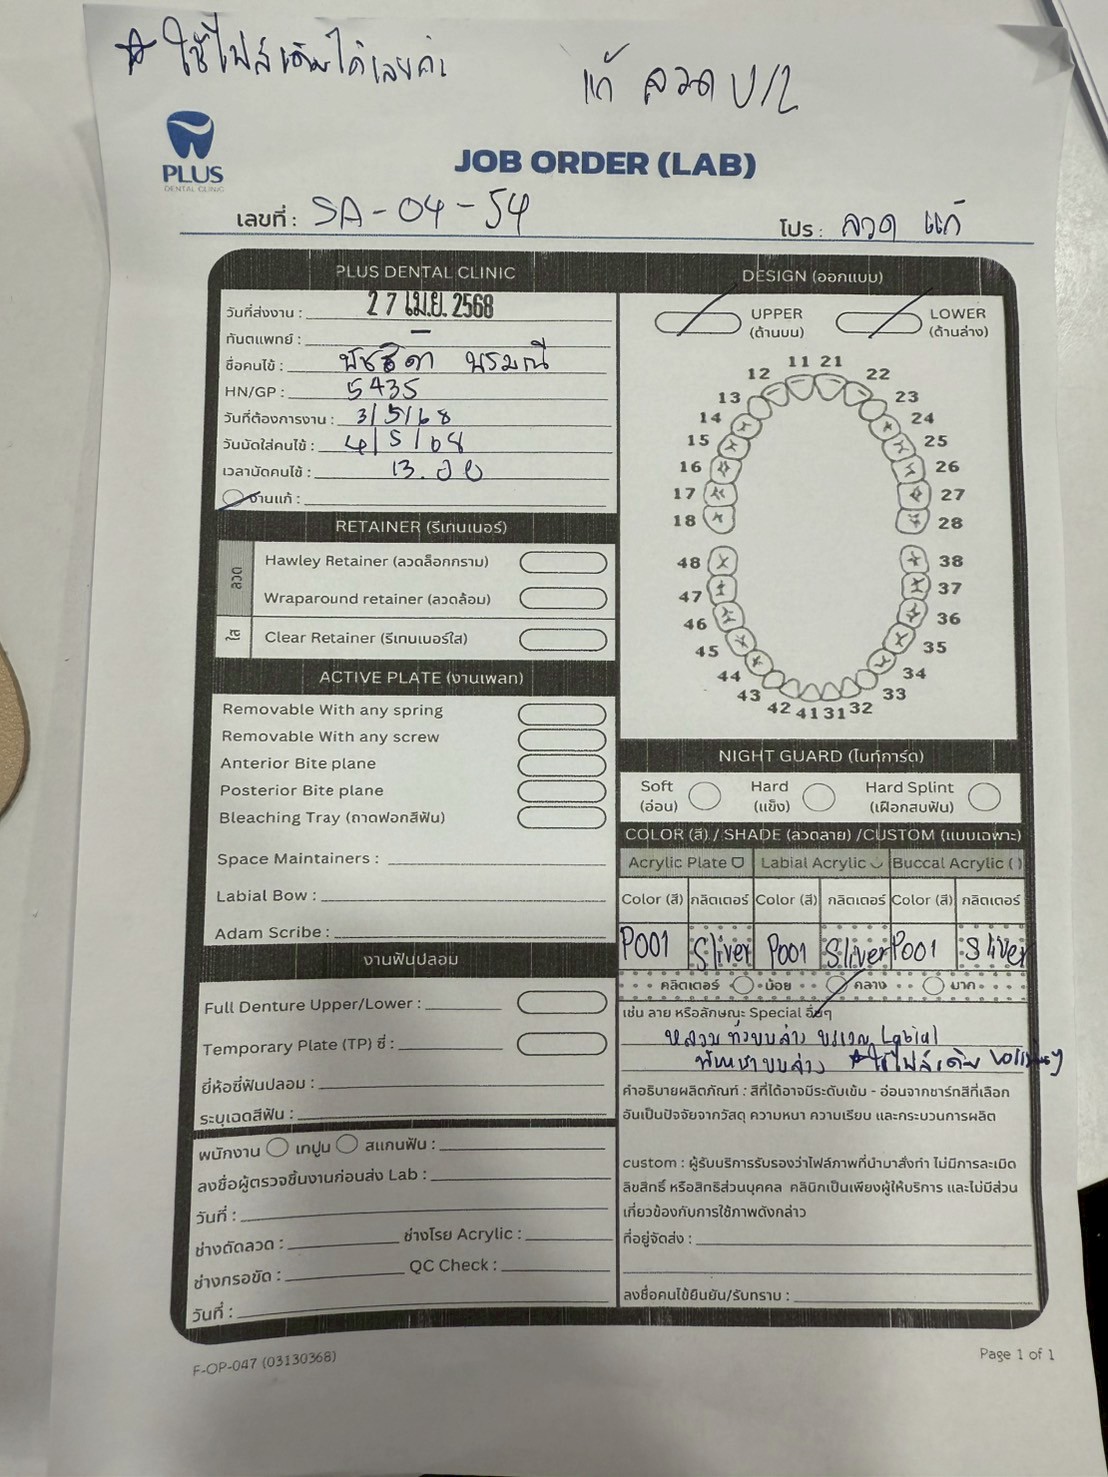 ☆ ใช้ไฟล์เดิมได้เลยค่ะ
แก้ ลวด U/L
PLUS
DENTAL CLINIC
JOB ORDER (LAB)
เลขที่ : SA-04-54
โปร : ลวด แก้
PLUS DENTAL CLINIC
วันที่ส่งงาน : 27 เม.ย. 2568
ทันตแพทย์ : -
ชื่อคนไข้ :
HN/GP : 5435
วันที่ต้องการงาน : 3/5/68
วันนัดใส่คนไข้ : 4/5/68
เวลานัดคนไข้ : 13.00
งานแก้ :
RETAINER (รีเทนเนอร์)
ลวด
Hawley Retainer (ลวดล็อกกราม)
Wraparound retainer (ลวดล้อม)
ใส
Clear Retainer (รีเทนเนอร์ใส)
ACTIVE PLATE (งานเพลท)
Removable With any spring
Removable With any screw
Anterior Bite plane
Posterior Bite plane
Bleaching Tray (ถาดฟอกสีฟัน)
Space Maintainers :
Labial Bow :
Adam Scribe :
งานฟันปลอม
Full Denture Upper/Lower :
Temporary Plate (TP) ซี่ :
ยี่ห้อซี่ฟันปลอม :
ระบุเฉดสีฟัน :
พนักงาน เทปูน สแกนฟัน :
ลงชื่อผู้ตรวจชิ้นงานก่อนส่ง Lab :
วันที่ :
ช่างดัดลวด : ช่างโรย Acrylic :
ช่างกรอขัด : QC Check :
วันที่ :
DESIGN (ออกแบบ)
UPPER (ด้านบน)
LOWER (ด้านล่าง)
11 21
12 22
13 23
14 24
15 25
16 26
17 27
18 28
48 38
47 37
46 36
45 35
44 34
43 33
42 41 31 32
NIGHT GUARD (ไนท์การ์ด)
Soft (อ่อน)
Hard (แข็ง)
Hard Splint (เฝือกสบฟัน)
COLOR (สี) / SHADE (ลวดลาย) /CUSTOM (แบบเฉพาะ)
Acrylic Plate Labial Acrylic Buccal Acrylic ( )
Color (สี) กลิตเตอร์ Color (สี) กลิตเตอร์ Color (สี) กลิตเตอร์
P001 Sliver P001 Sliver P001 Sliver
กลิตเตอร์ น้อย กลาง มาก
เช่น ลาย หรือลักษณะ Special อื่นๆ
Labial
☆ใช้ไฟล์เดิม
คำอธิบายผลิตภัณฑ์ : สีที่ได้อาจมีระดับเข้ม - อ่อนจากชาร์ทสีที่เลือก
อันเป็นปัจจัยจากวัสดุ ความหนา ความเรียบ และกระบวนการผลิต
custom : ผู้รับบริการรับรองว่าไฟล์ภาพที่นำมาสั่งทำ ไม่มีการละเมิด
ลิขสิทธิ์ หรือสิทธิส่วนบุคคล คลินิกเป็นเพียงผู้ให้บริการ และไม่มีส่วน
เกี่ยวข้องกับการใช้ภาพดังกล่าว
ที่อยู่จัดส่ง :
ลงชื่อคนไข้ยืนยัน/รับทราบ :
F-OP-047 (03130368)
Page 1 of 1